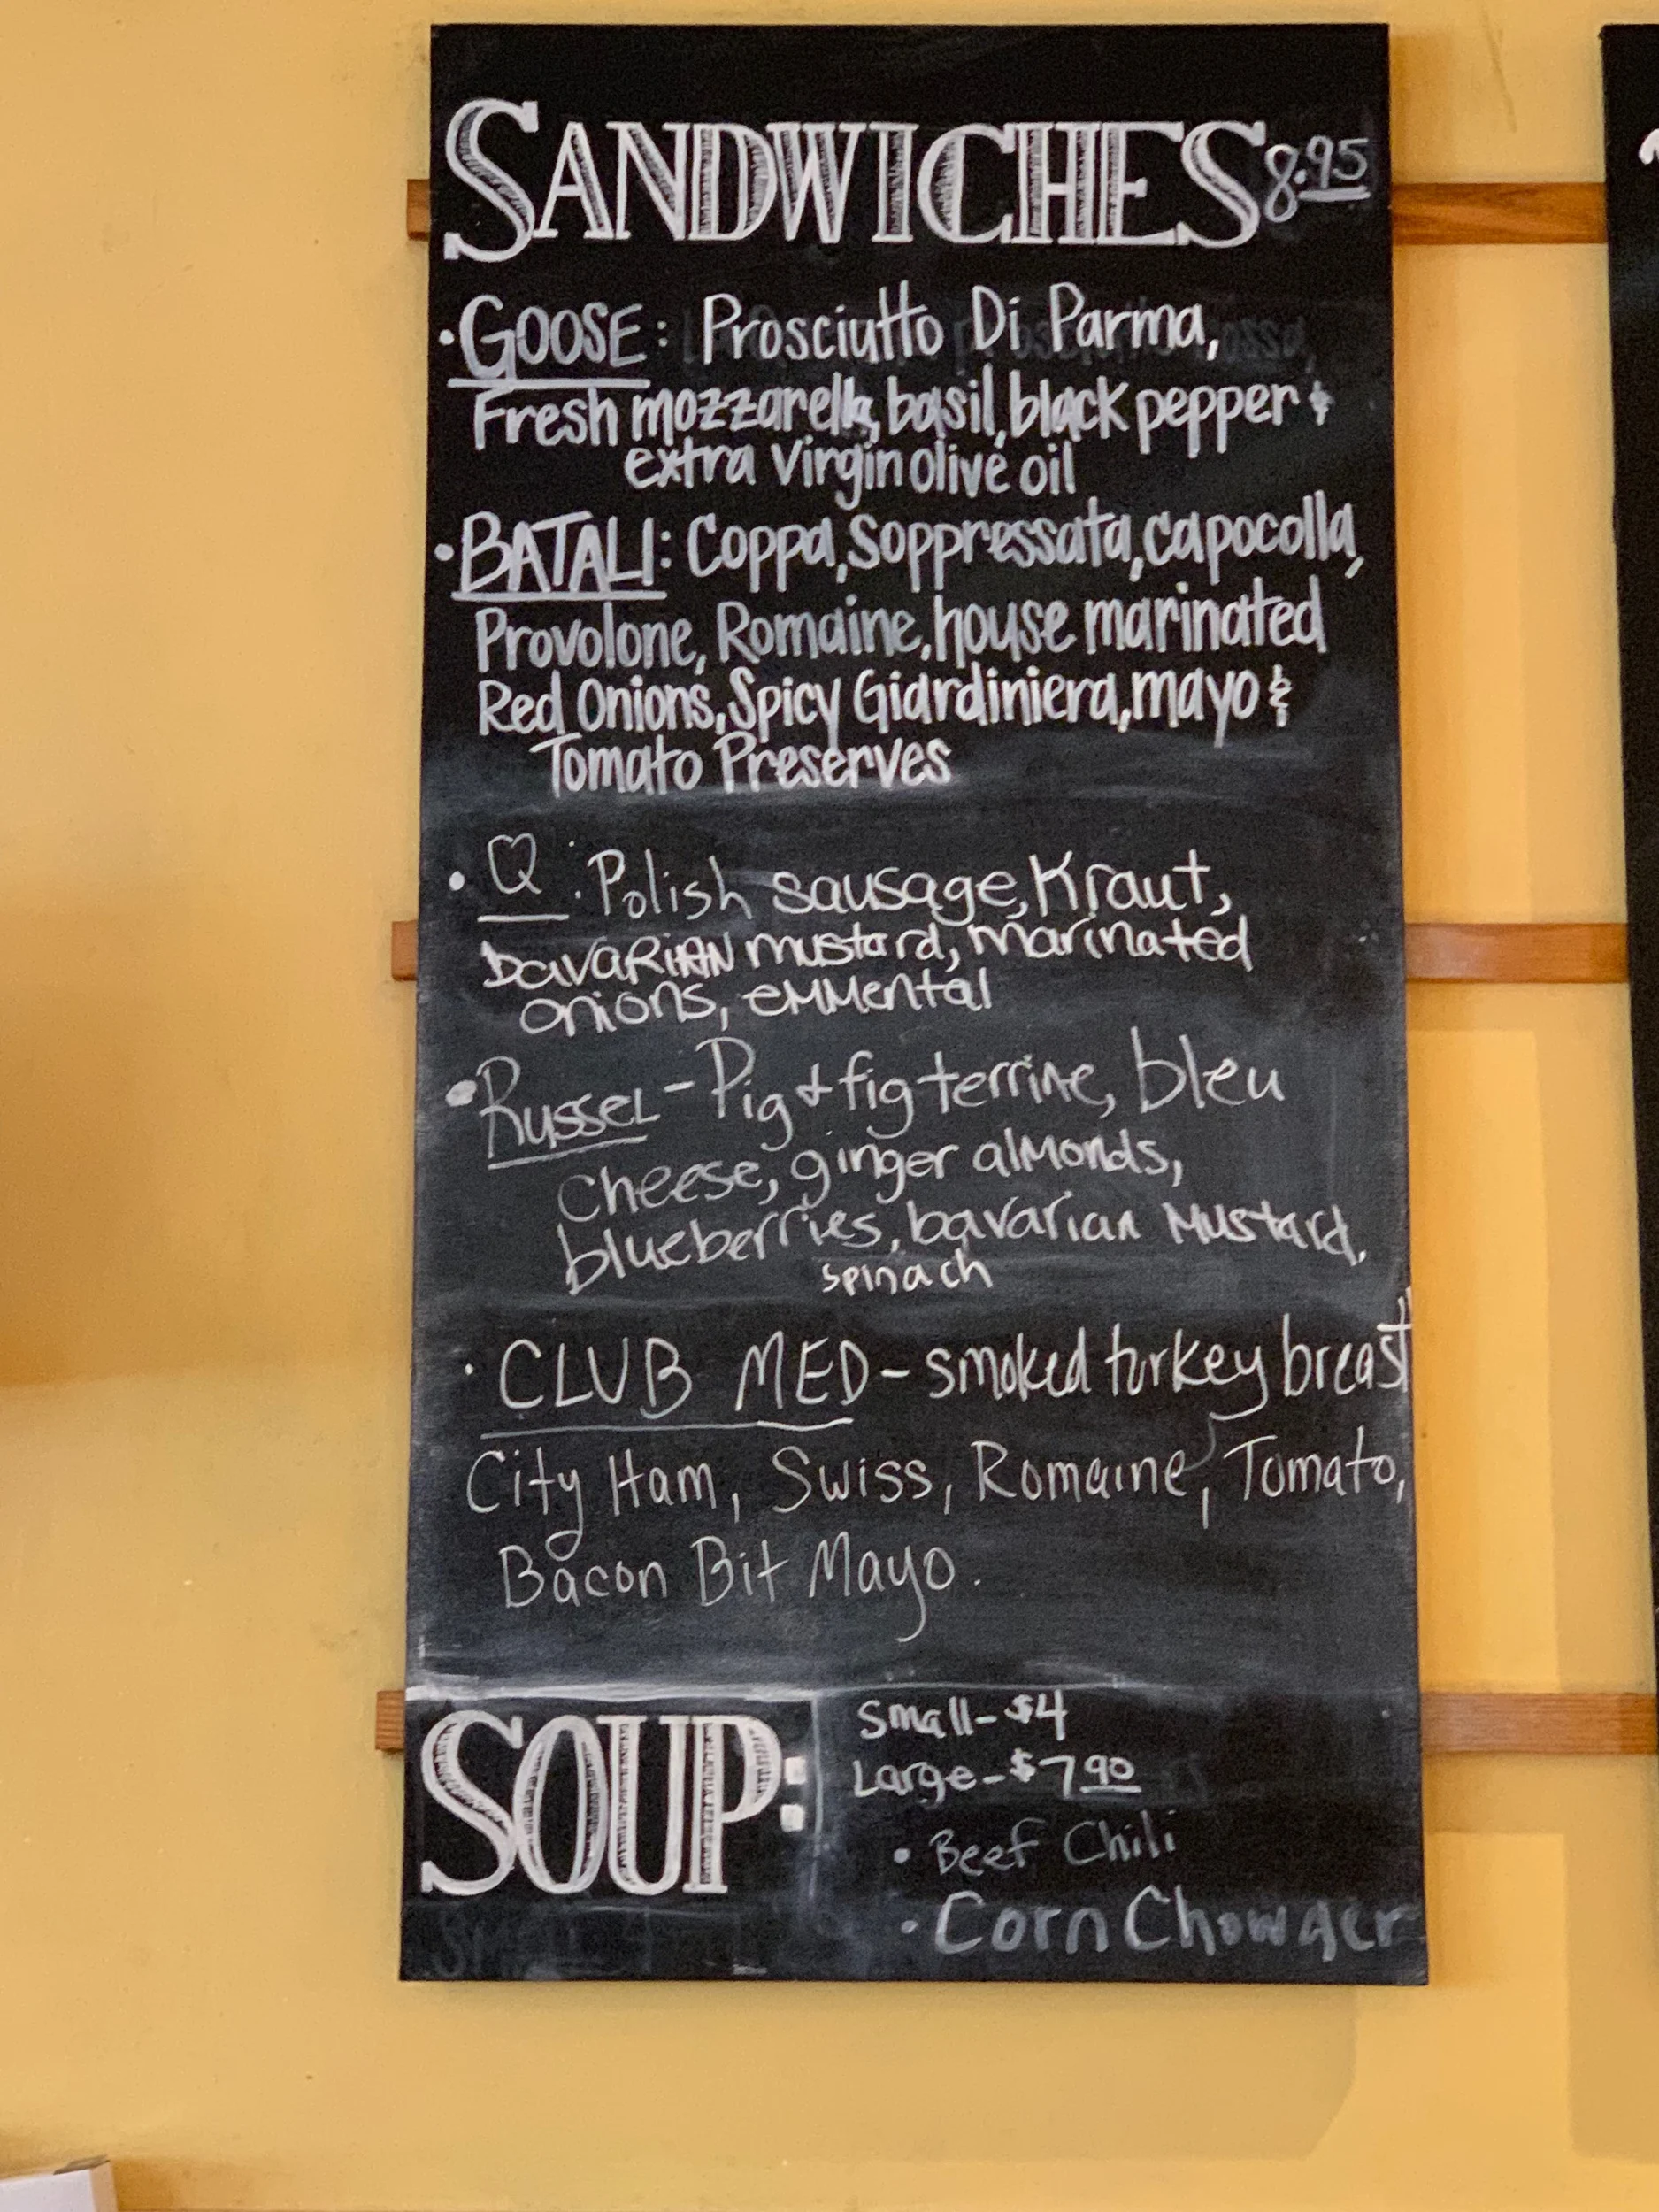 SANDWICHES 8.95
• GOOSE: Prosciutto Di Parma,
Fresh mozzarella, basil, black pepper &
extra virgin olive oil
• BATALI: Coppa, Soppressata, capocolla,
Provolone, Romaine, house marinated
Red Onions, Spicy Giardiniera, mayo &
Tomato Preserves
• Q: Polish sausage, Kraut,
bavaRIAN mustard, marinated
onions, emmental
• Russel - Pig & fig terrine, bleu
cheese, ginger almonds,
blueberries, bavarian mustard,
spinach
• CLUB MED - smoked turkey breast,
City Ham, Swiss, Romaine, Tomato,
Bacon Bit Mayo.
SOUP:
Small - $4
Large - $7.90
• Beef Chili
• Corn Chowder